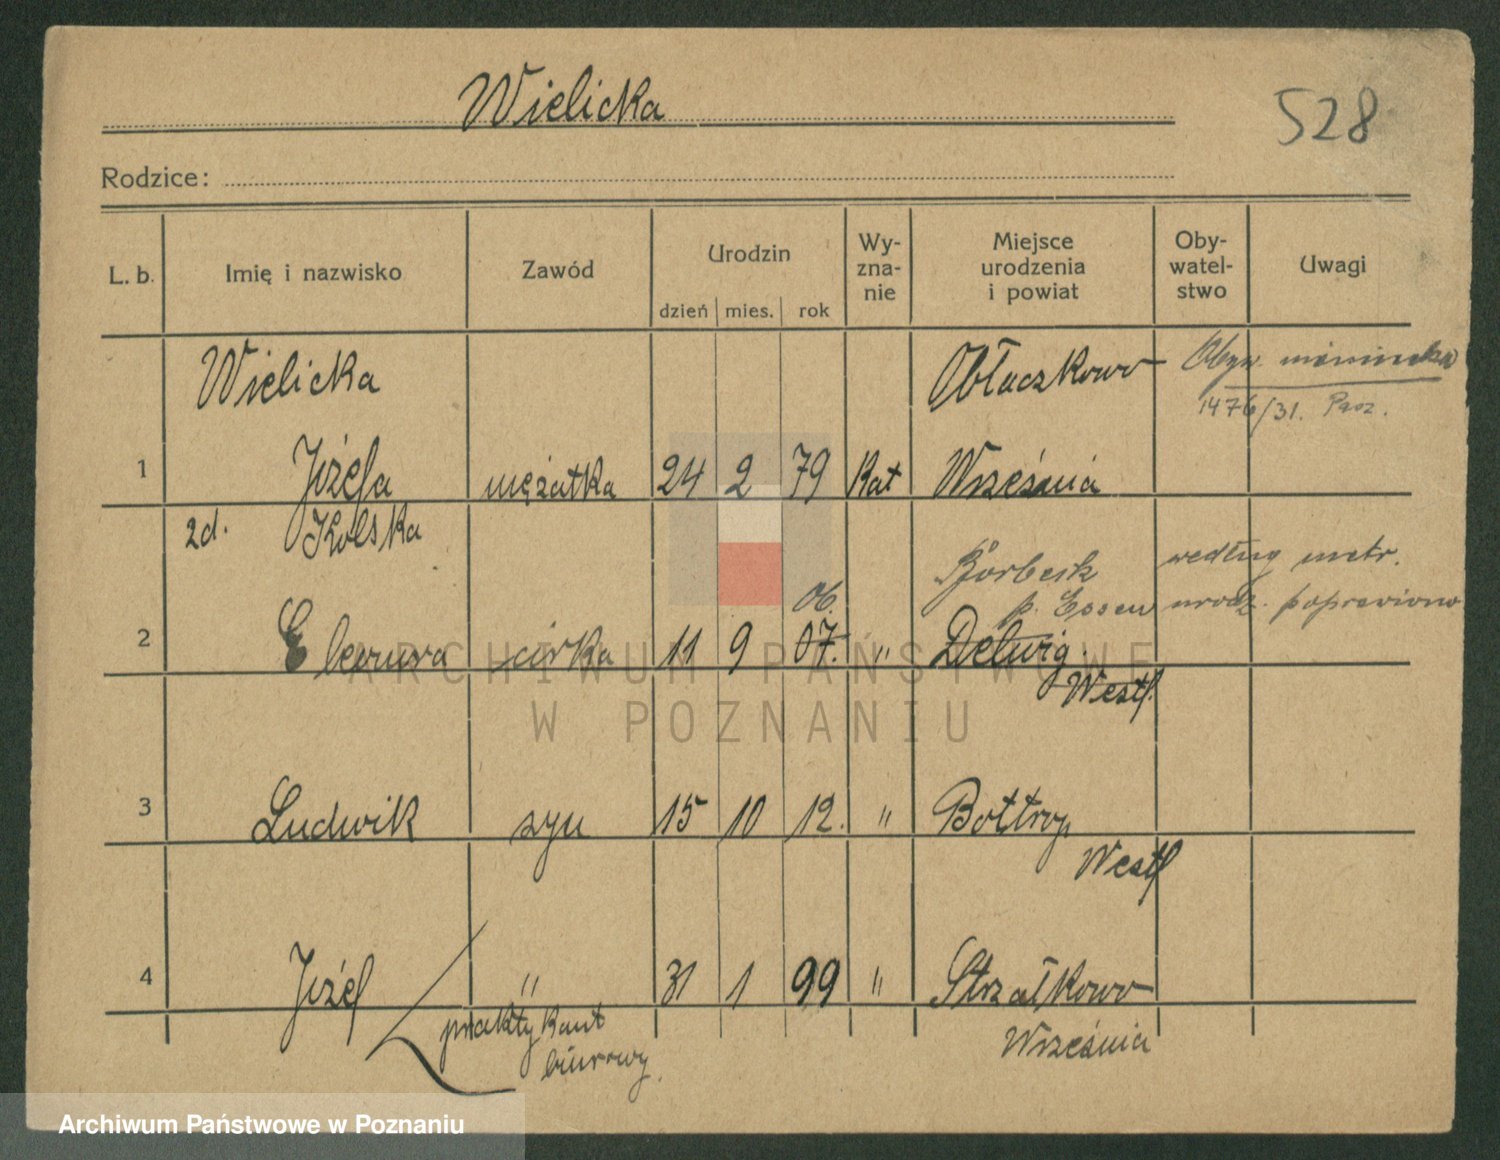 Wielicka
528
Rodzice:
L. b. Imię i nazwisko Zawód Urodzin dzień mies. rok Wy-zna-nie Miejsce urodzenia i powiat Oby-watel-stwo Uwagi
Wielicka Obłaczkowo Obyw.
1476/31.
1 Józefa mężatka 24 2 79 Kat Września
2d. Kolska
Borbeck według metr.
06. p. Essen urodz. poprawiono
2 Eleonora córka 11 9 07. " Delwig.
Westf.
3 Ludwik syn 15 10 12. " Bottrop
Westf
4 Józef " 31 1 99 " Strzałkowo
praktykant Września
biurowy.
ARCHIWUM PAŃSTWOWE
W POZNANIU
Archiwum Państwowe w Poznaniu